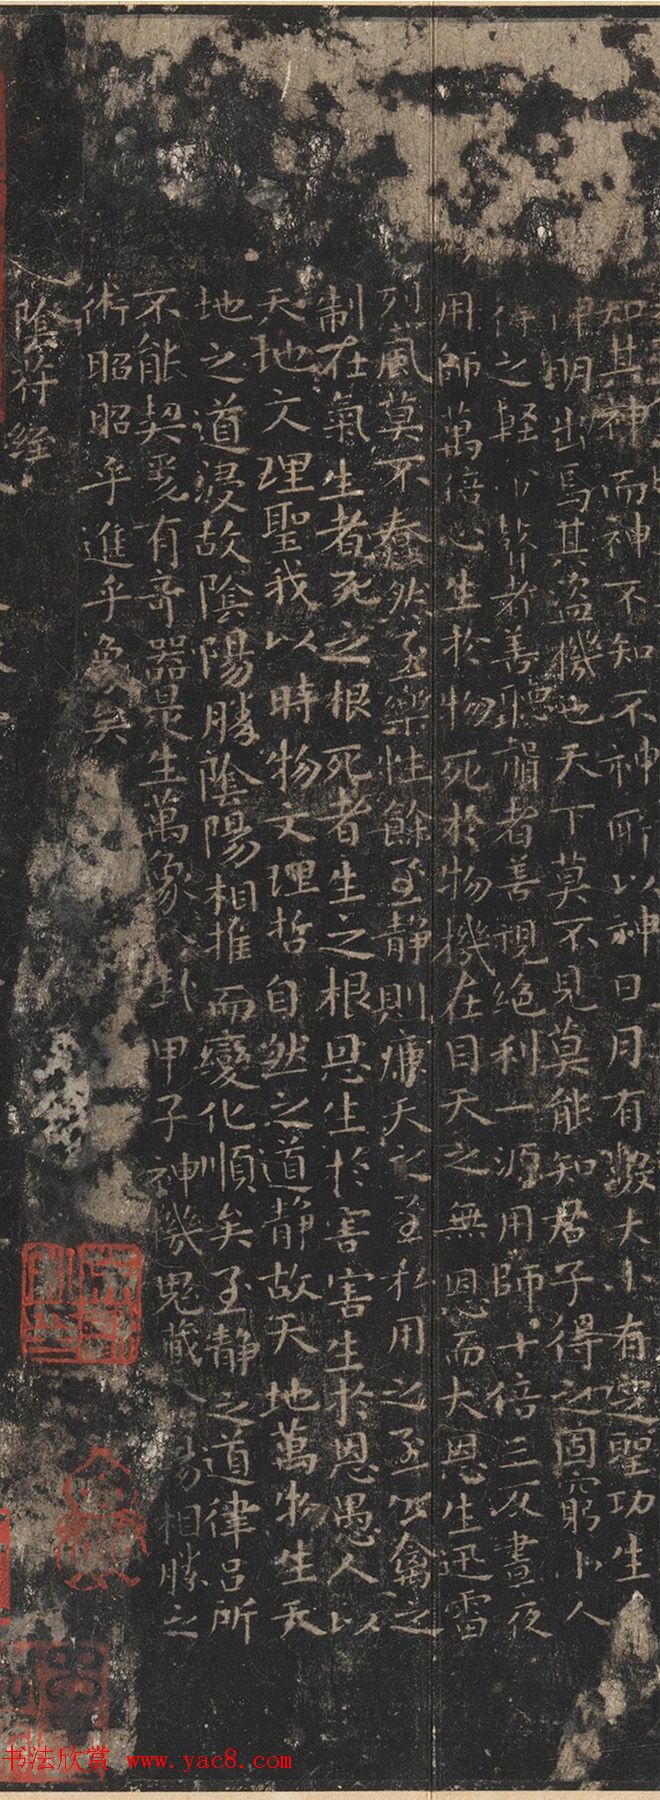 知其神而神不知不神所以神日月有數大小有定聖功生
神明出焉其盜機也天下莫不見莫能知君子得之固窮小人
得之輕命瞽者善聽聾者善視絕利一源用師十倍三反晝夜
用師萬倍心生於物死於物機在目天之無恩而大恩生迅雷
列風莫不蠢然至樂性餘至靜則廉天之至私用之至公禽之
制在氣生者死之根死者生之根恩生於害害生於恩愚人以
天地文理聖我以時物文理哲自然之道靜故天地萬物生天
地之道浸故陰陽勝陰陽相推而變化順矣至靜之道律呂所
不能契爰有奇器是生萬象八卦甲子神機鬼藏陰陽相勝之
術昭昭乎進乎象矣
陰符經
书法欣赏 www.yac8.com